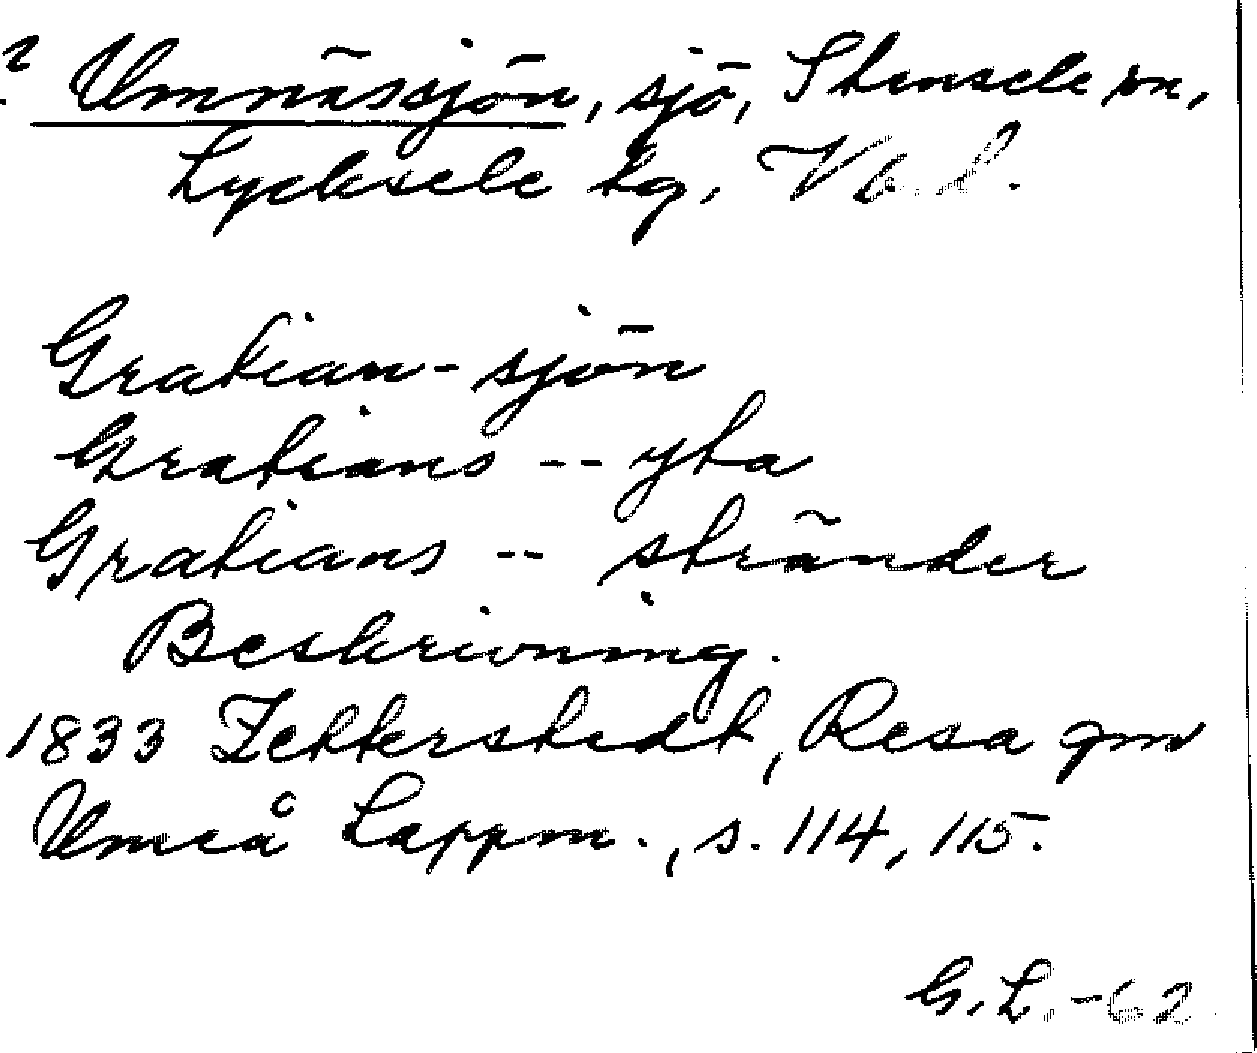 ? Umnässjön, sjö, Stensele sn,
Lycksele lg, Vb.l.
Gratian-sjön
Gratians -- yta
Gratians -- stränder
Beskrivning.
1833 Zetterstedt, Resa gm
Umeå Lappm., s. 114, 115.
G.L. -62